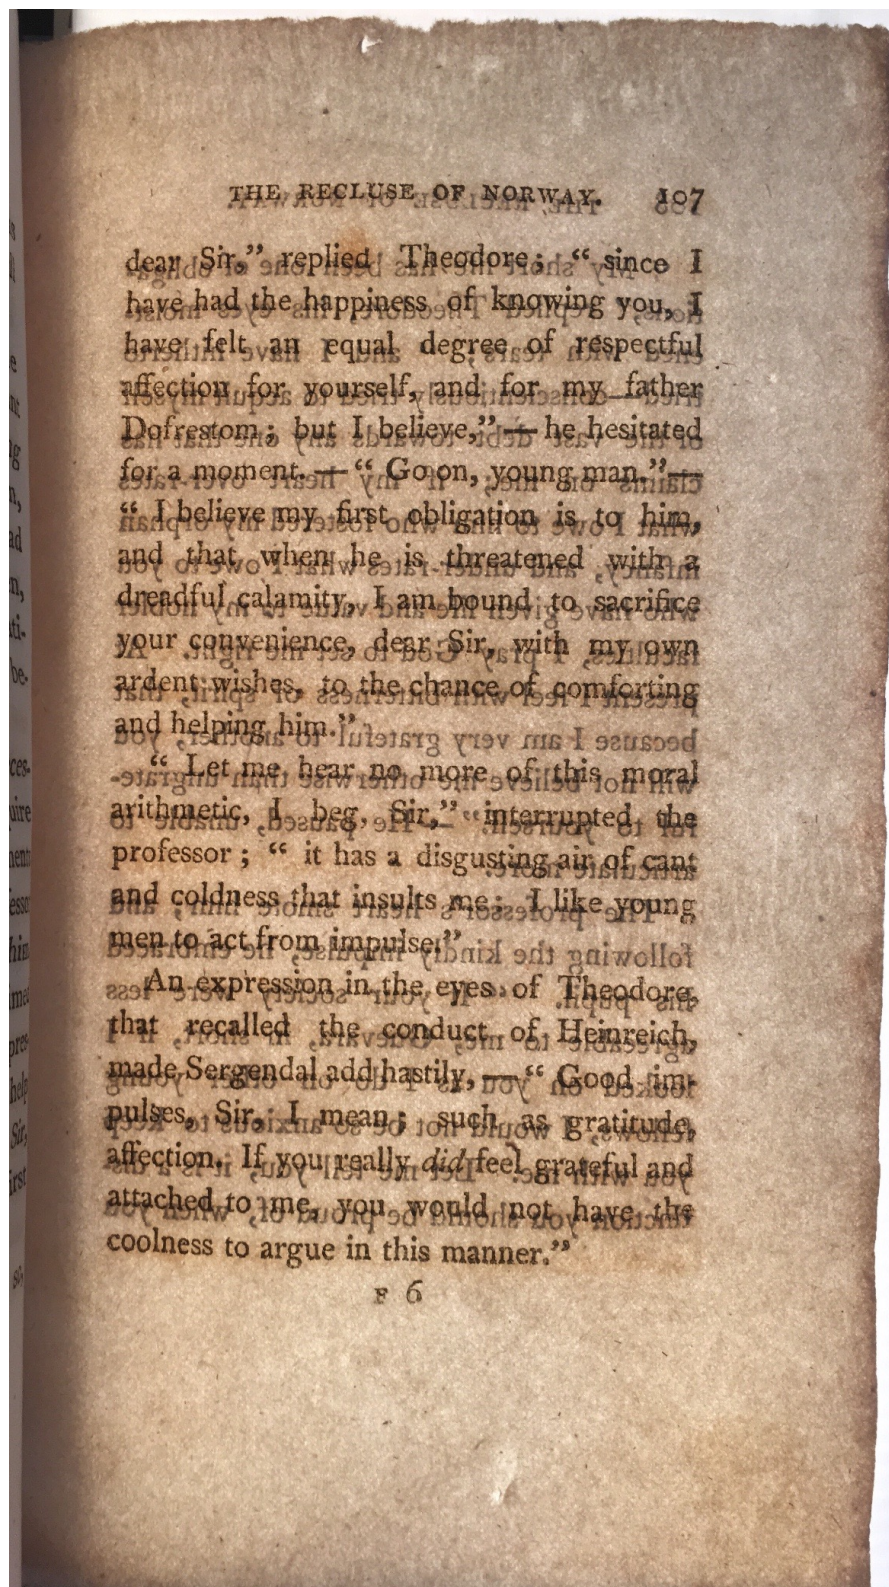 THE RECLUSE OF NORWAY. 107
dear Sir,” replied Theodore; “ since I
have had the happiness of knowing you, I
have felt an equal degree of respectful
affection for yourself, and for my father
Dofrestom; but I believe,”— he hesitated
for a moment.—“ Go on, young man.”—
“ I believe my first obligation is to him,
and that when he is threatened with a
dreadful calamity, I am bound to sacrifice
your convenience, dear Sir, with my own
ardent wishes, to the chance of comforting
and helping him.”
“ Let me hear no more of this moral
arithmetic, I beg, Sir,” interrupted the
professor; “ it has a disgusting air of cant
and coldness that insults me: I like young
men to act from impulse.”
An expression in the eyes of Theodore,
that recalled the conduct of Heinreich,
made Sergendal add hastily,—“ Good im-
pulses, Sir, I mean; such as gratitude,
affection. If you really did feel grateful and
attached to me, you would not have the
coolness to argue in this manner.”
F 6